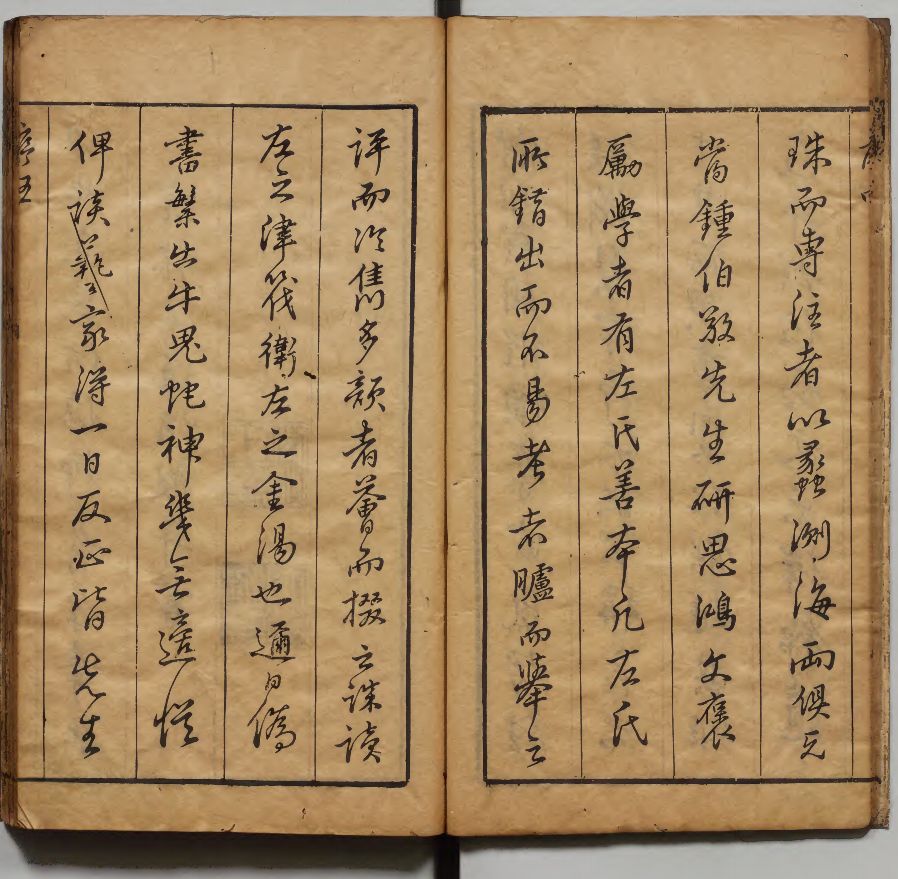 珠而專注者以蠡測海兩俱无
當鍾伯敬先生研思鴻文褒
勵學者有左氏善本凡左氏
所錯出而不易考者臚而舉之
評而冷雋多韻者薈而掇之誠讀
左之津筏衛左之金湯也邇日偽
書繁出牛鬼蛇神幾無遺
俾談藝家得一日反正皆先生
序五